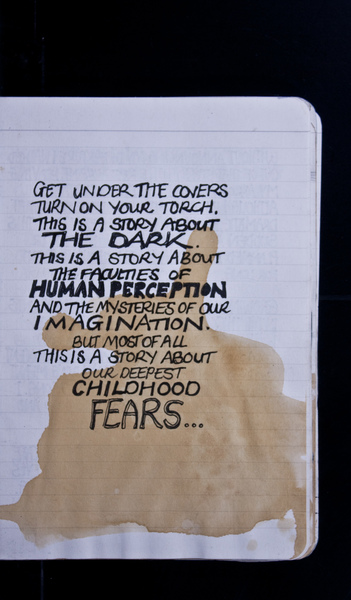 GET UNDER THE COVERS
TURN ON YOUR TORCH.
THIS IS A STORY ABOUT
THE DARK.
THIS IS A STORY ABOUT
THE FACULTIES OF
HUMAN PERCEPTION
AND THE MYSTERIES OF OUR
IMAGINATION.
BUT MOST OF ALL
THIS IS A STORY ABOUT
OUR DEEPEST
CHILDHOOD
FEARS...